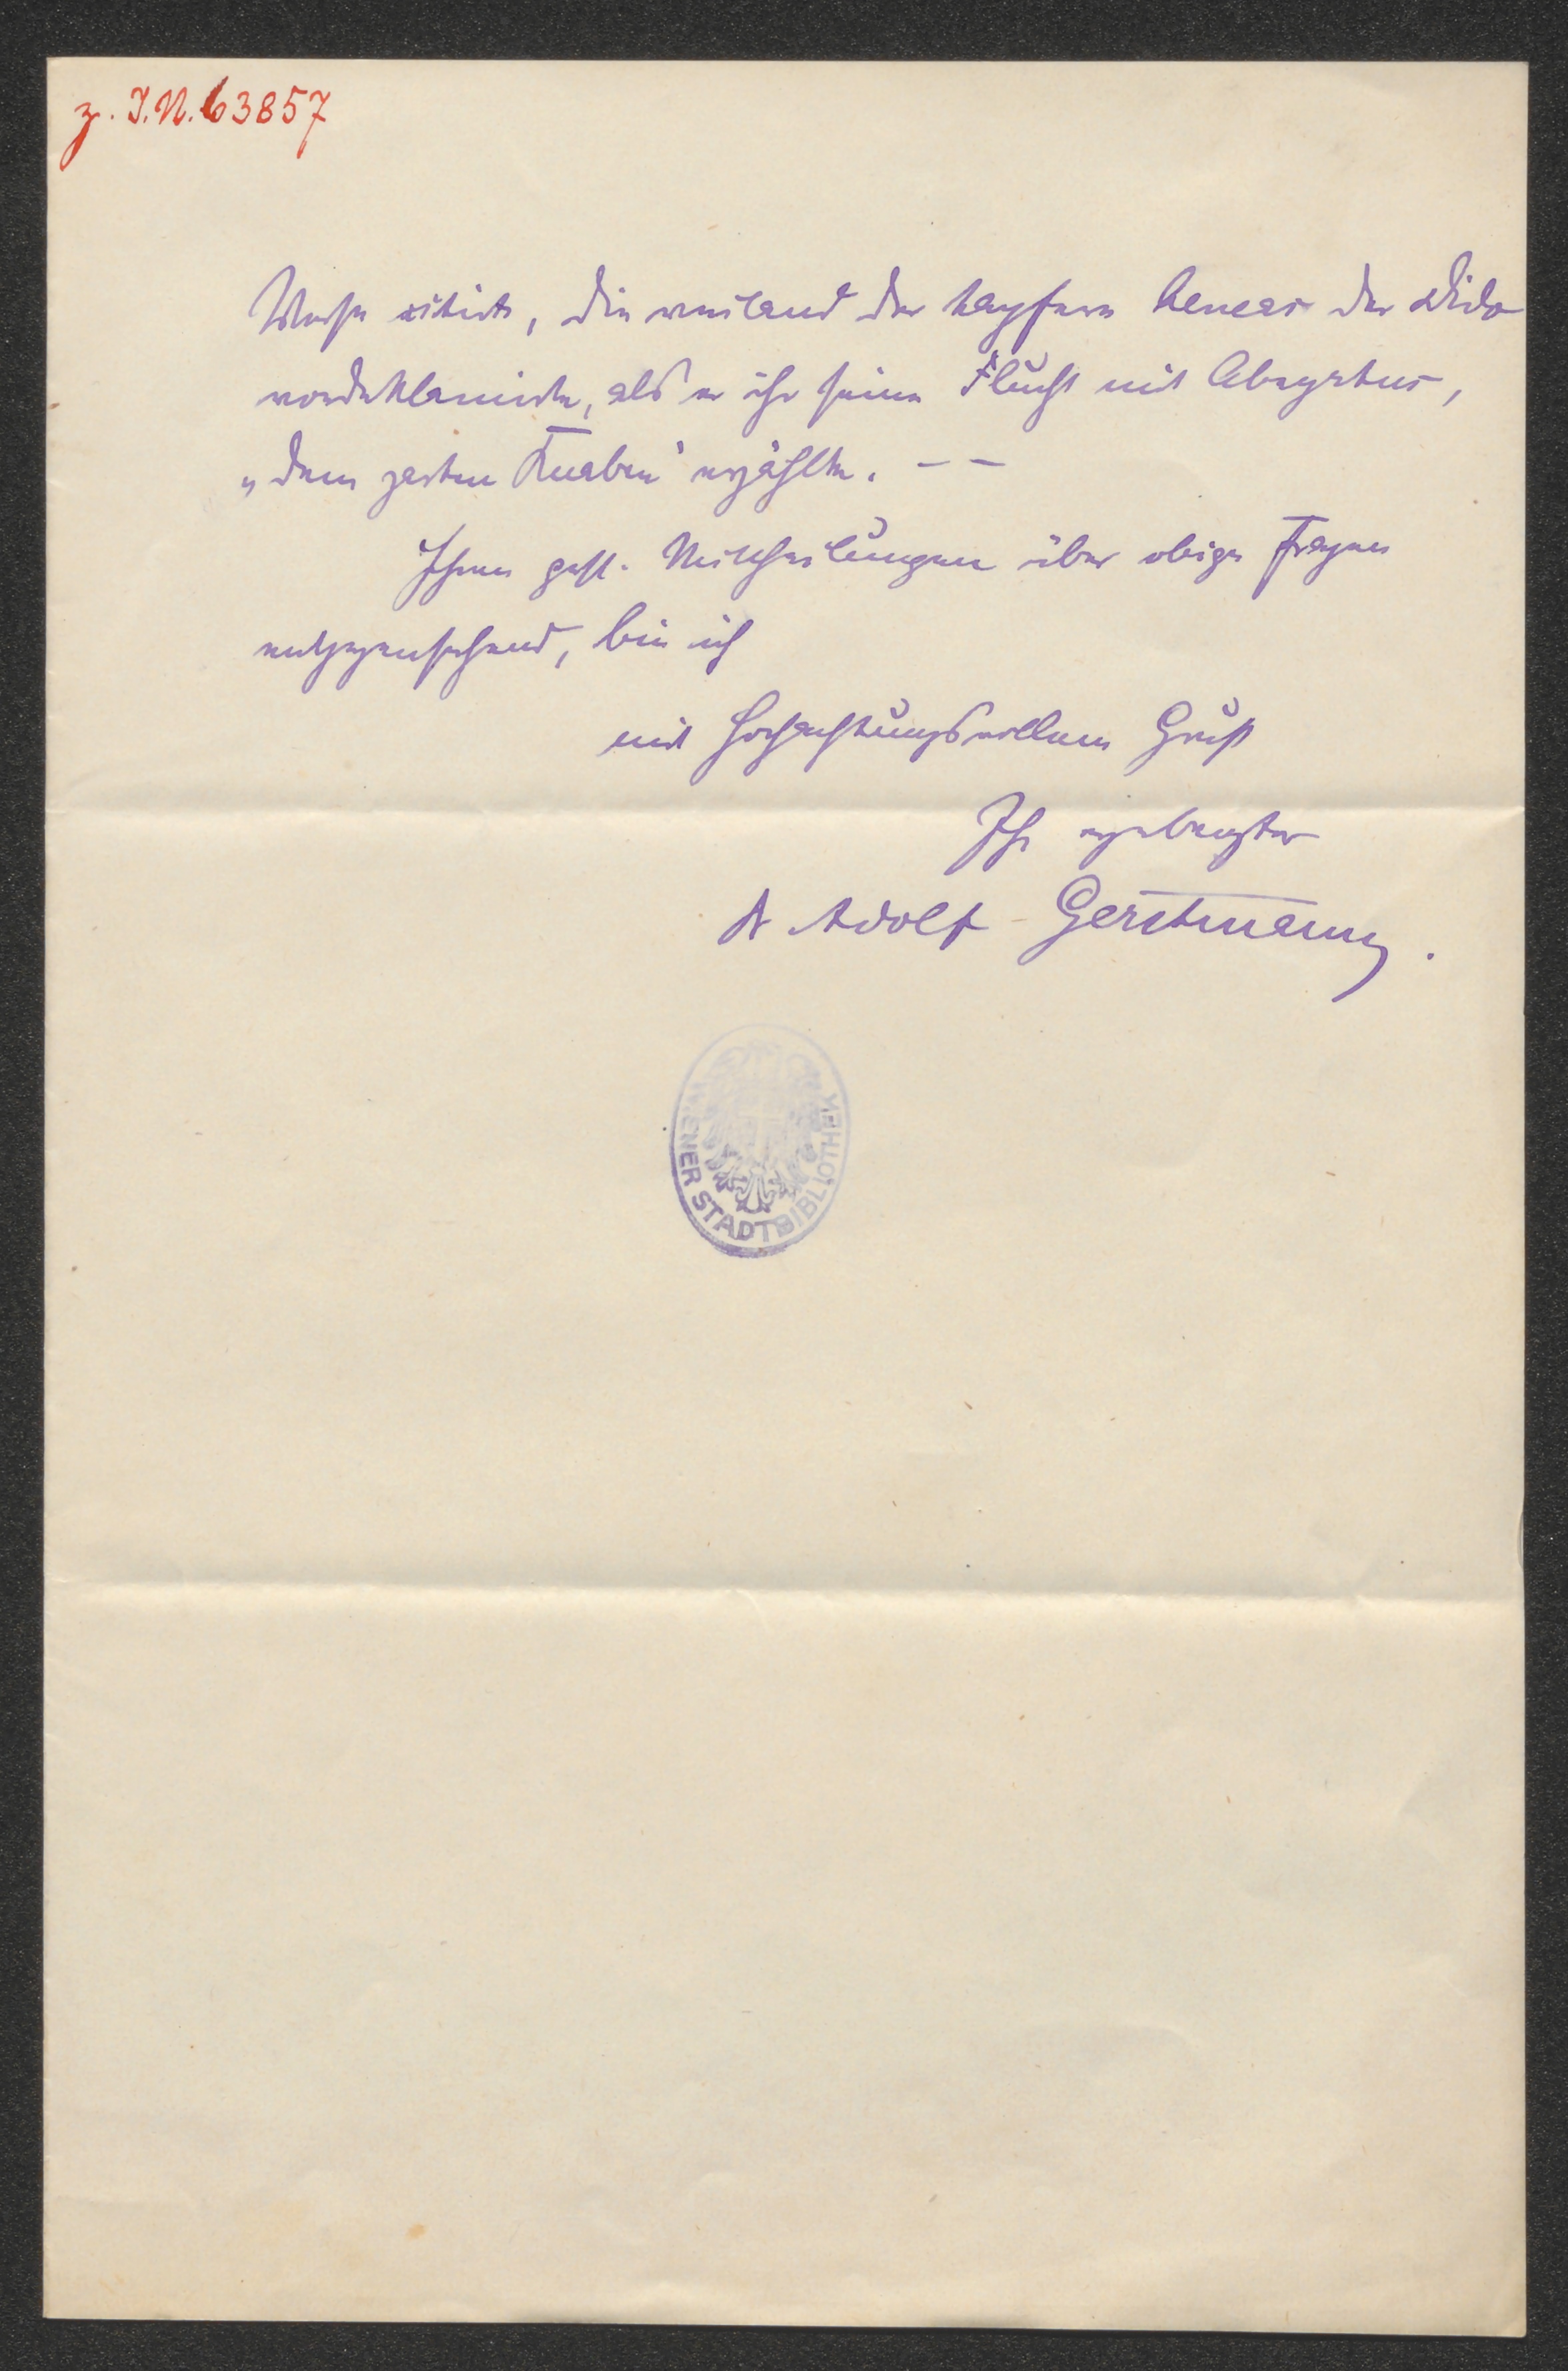 z. I.N. 63857
Verse zitirt, die weiland der tapfere Aeneas der Dido
vordeklamirte, als er ihr seine Flucht mit Absyrtus,
„dem zarten Knaben" erzählte. – –
Ihren gefl. Mittheilungen über obige Fragen
entgegensehend, bin ich
mit hochachtungsvollem Gruß
Ihr ergebenster
Adolf Gerstmann.
WIENER STADTBIBLIOTHEK